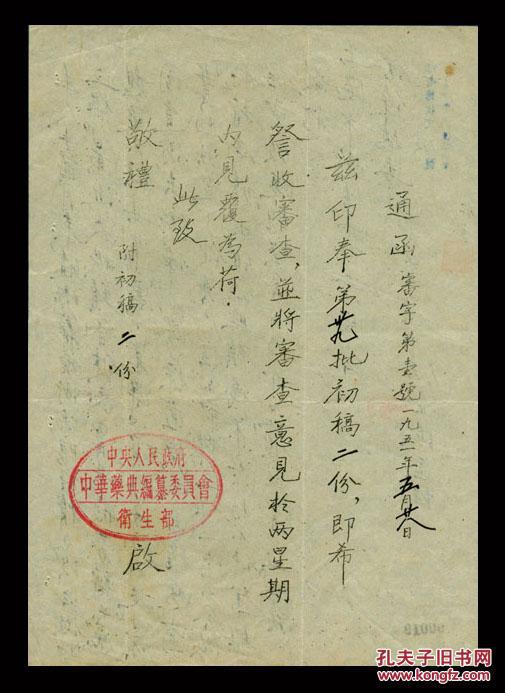 通函審字第壹號一九五一年五月廿八日
茲印奉第廿九批初稿二份，即希
詧收審查，並將審查意見於两星期
內見覆為荷．
此致
敬禮
附初稿二份
中央人民政府
中華藥典編纂委員會
衛生部
啟
孔夫子旧书网
KONGFZ.COM